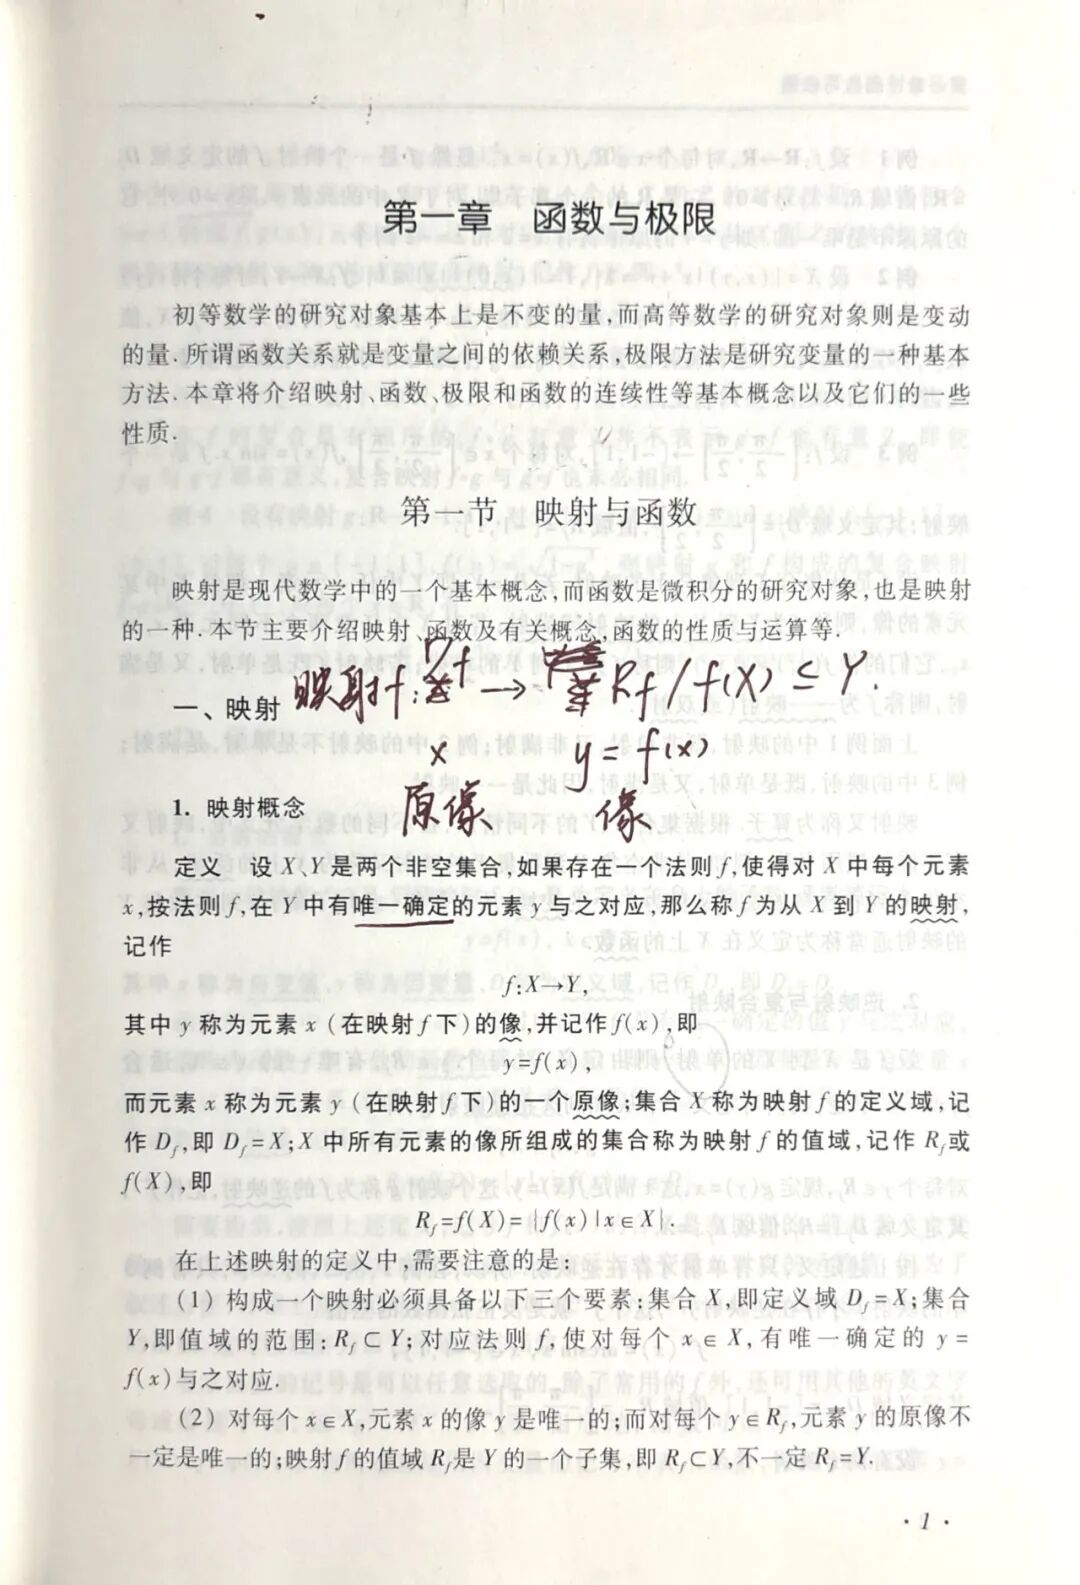 第一章 函数与极限
初等数学的研究对象基本上是不变的量,而高等数学的研究对象则是变动
的量.所谓函数关系就是变量之间的依赖关系,极限方法是研究变量的一种基本
方法.本章将介绍映射、函数、极限和函数的连续性等基本概念以及它们的一些
性质.
第一节 映射与函数
映射是现代数学中的一个基本概念,而函数是微积分的研究对象,也是映射
的一种.本节主要介绍映射、函数及有关概念,函数的性质与运算等.
映射f: Df → Rf / f(X) ⊆ Y.
一、映射
x y = f(x)
原像 像
1. 映射概念
定义 设 X、Y 是两个非空集合,如果存在一个法则 f,使得对 X 中每个元素
x,按法则 f,在 Y 中有唯一确定的元素 y 与之对应,那么称 f 为从 X 到 Y 的映射,
记作
f:X→Y,
其中 y 称为元素 x (在映射 f 下)的像,并记作 f(x),即
y=f(x),
而元素 x 称为元素 y (在映射 f 下)的一个原像;集合 X 称为映射 f 的定义域,记
作 D_f,即 D_f=X;X 中所有元素的像所组成的集合称为映射 f 的值域,记作 R_f或
f(X),即
R_f=f(X)={f(x)|x∈X}.
在上述映射的定义中,需要注意的是:
(1) 构成一个映射必须具备以下三个要素:集合 X,即定义域 D_f=X;集合
Y,即值域的范围:R_f⊂Y;对应法则 f,使对每个 x∈X,有唯一确定的 y=
f(x)与之对应.
(2) 对每个 x∈X,元素 x 的像 y 是唯一的;而对每个 y∈R_f,元素 y 的原像不
一定是唯一的;映射 f 的值域 R_f是 Y 的一个子集,即 R_f⊂Y,不一定 R_f=Y.
· 1 ·